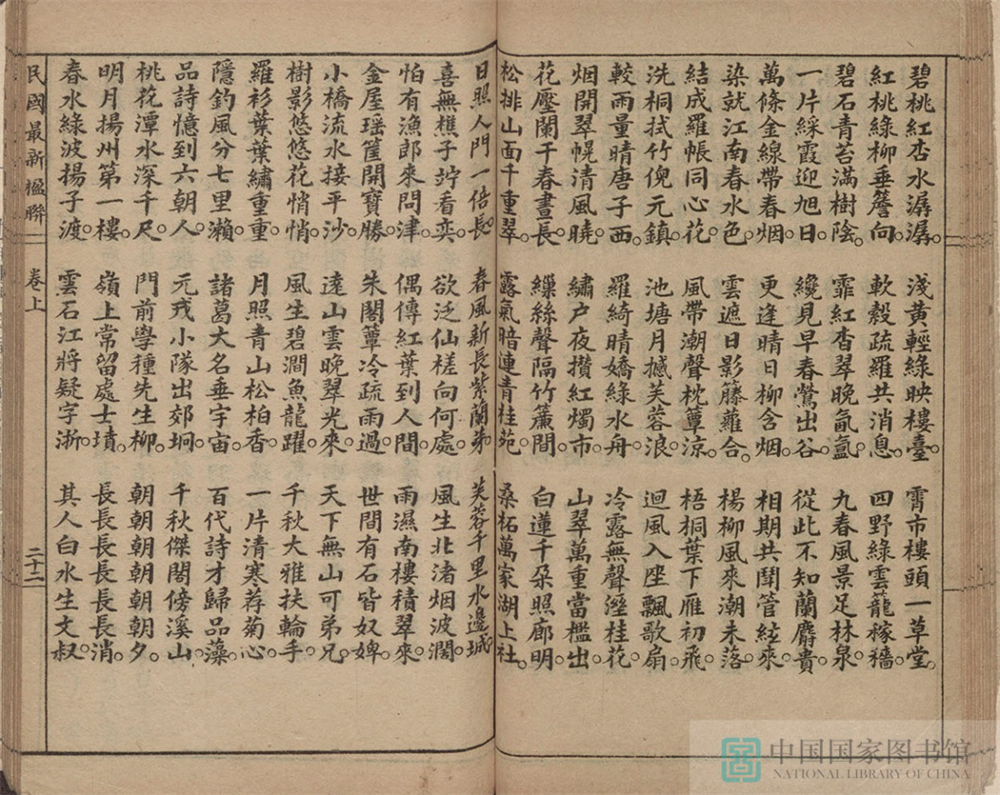 碧桃紅杏水潺潺。淺黃輕綠映樓臺。霄市樓頭一草堂。
紅桃綠柳垂簷向 軟縠疏羅共消息。四野綠雲籠稼穡
碧石青苔滿樹陰。霏紅杳翠晚氤氳。九春風景足林泉
一片綵霞迎旭日 纔見早春鶯出谷。從此不知蘭麝貴
萬條金線帶春烟。更逢晴日柳含烟 相期共鬬管絃來。
染就江南春水色 雲遮日影籐蘿合。楊柳風來潮未落
結成羅帳同心花。風帶潮聲枕簟涼。梧桐葉下雁初飛。
洗桐拭竹倪元鎮 池塘月撼芙蓉浪 迴風入座飄歌扇。
較雨量晴唐子西。羅綺晴嬌綠水舟。冷露無聲溼桂花。
烟開翠幌清風曉 繡户夜攢紅燭市 山翠萬重當檻出。
花壓闌干春晝長。繅絲聲隔竹簾間 白蓮千朵照廊明。
松排山面千重翠。露氣暗連青桂苑。桑柘萬家湖上社。
日照人門一倍長。春風新長紫蘭茀 芙蓉千里水邊城。
喜無樵子竚看奕 欲泛仙槎向何處 風生北渚烟波濶。
怕有漁郎來問津。偶傳紅葉到人間 雨濕南樓積翠來。
金屋瑶篋開寶勝 朱閣簟冷疏雨過。世間有石皆奴婢
小橋流水接平沙。遠山雲晚翠光來 天下無山可弟兄。
樹影悠悠花悄悄 風生碧澗魚龍躍 千秋大雅扶輪手
羅衫葉葉繡重重 月照青山松柏香。一片清寒荐菊心
隱釣風分七里瀨。諸葛大名垂宇宙 百代詩才歸品藻
品詩憶到六朝人 元戎小隊出郊坰 千秋傑閣傍溪山
桃花潭水深千尺 門前學種先生柳。朝朝朝朝朝朝夕。
明月揚州第一樓。嶺上常留處士墳。長長長長長長消。
春水綠波揚子渡。雲石江將疑字浙 其人白水生文叔
民國最新楹聯 卷上 二十二
中国国家图书馆
NATIONAL LIBRARY OF CHINA